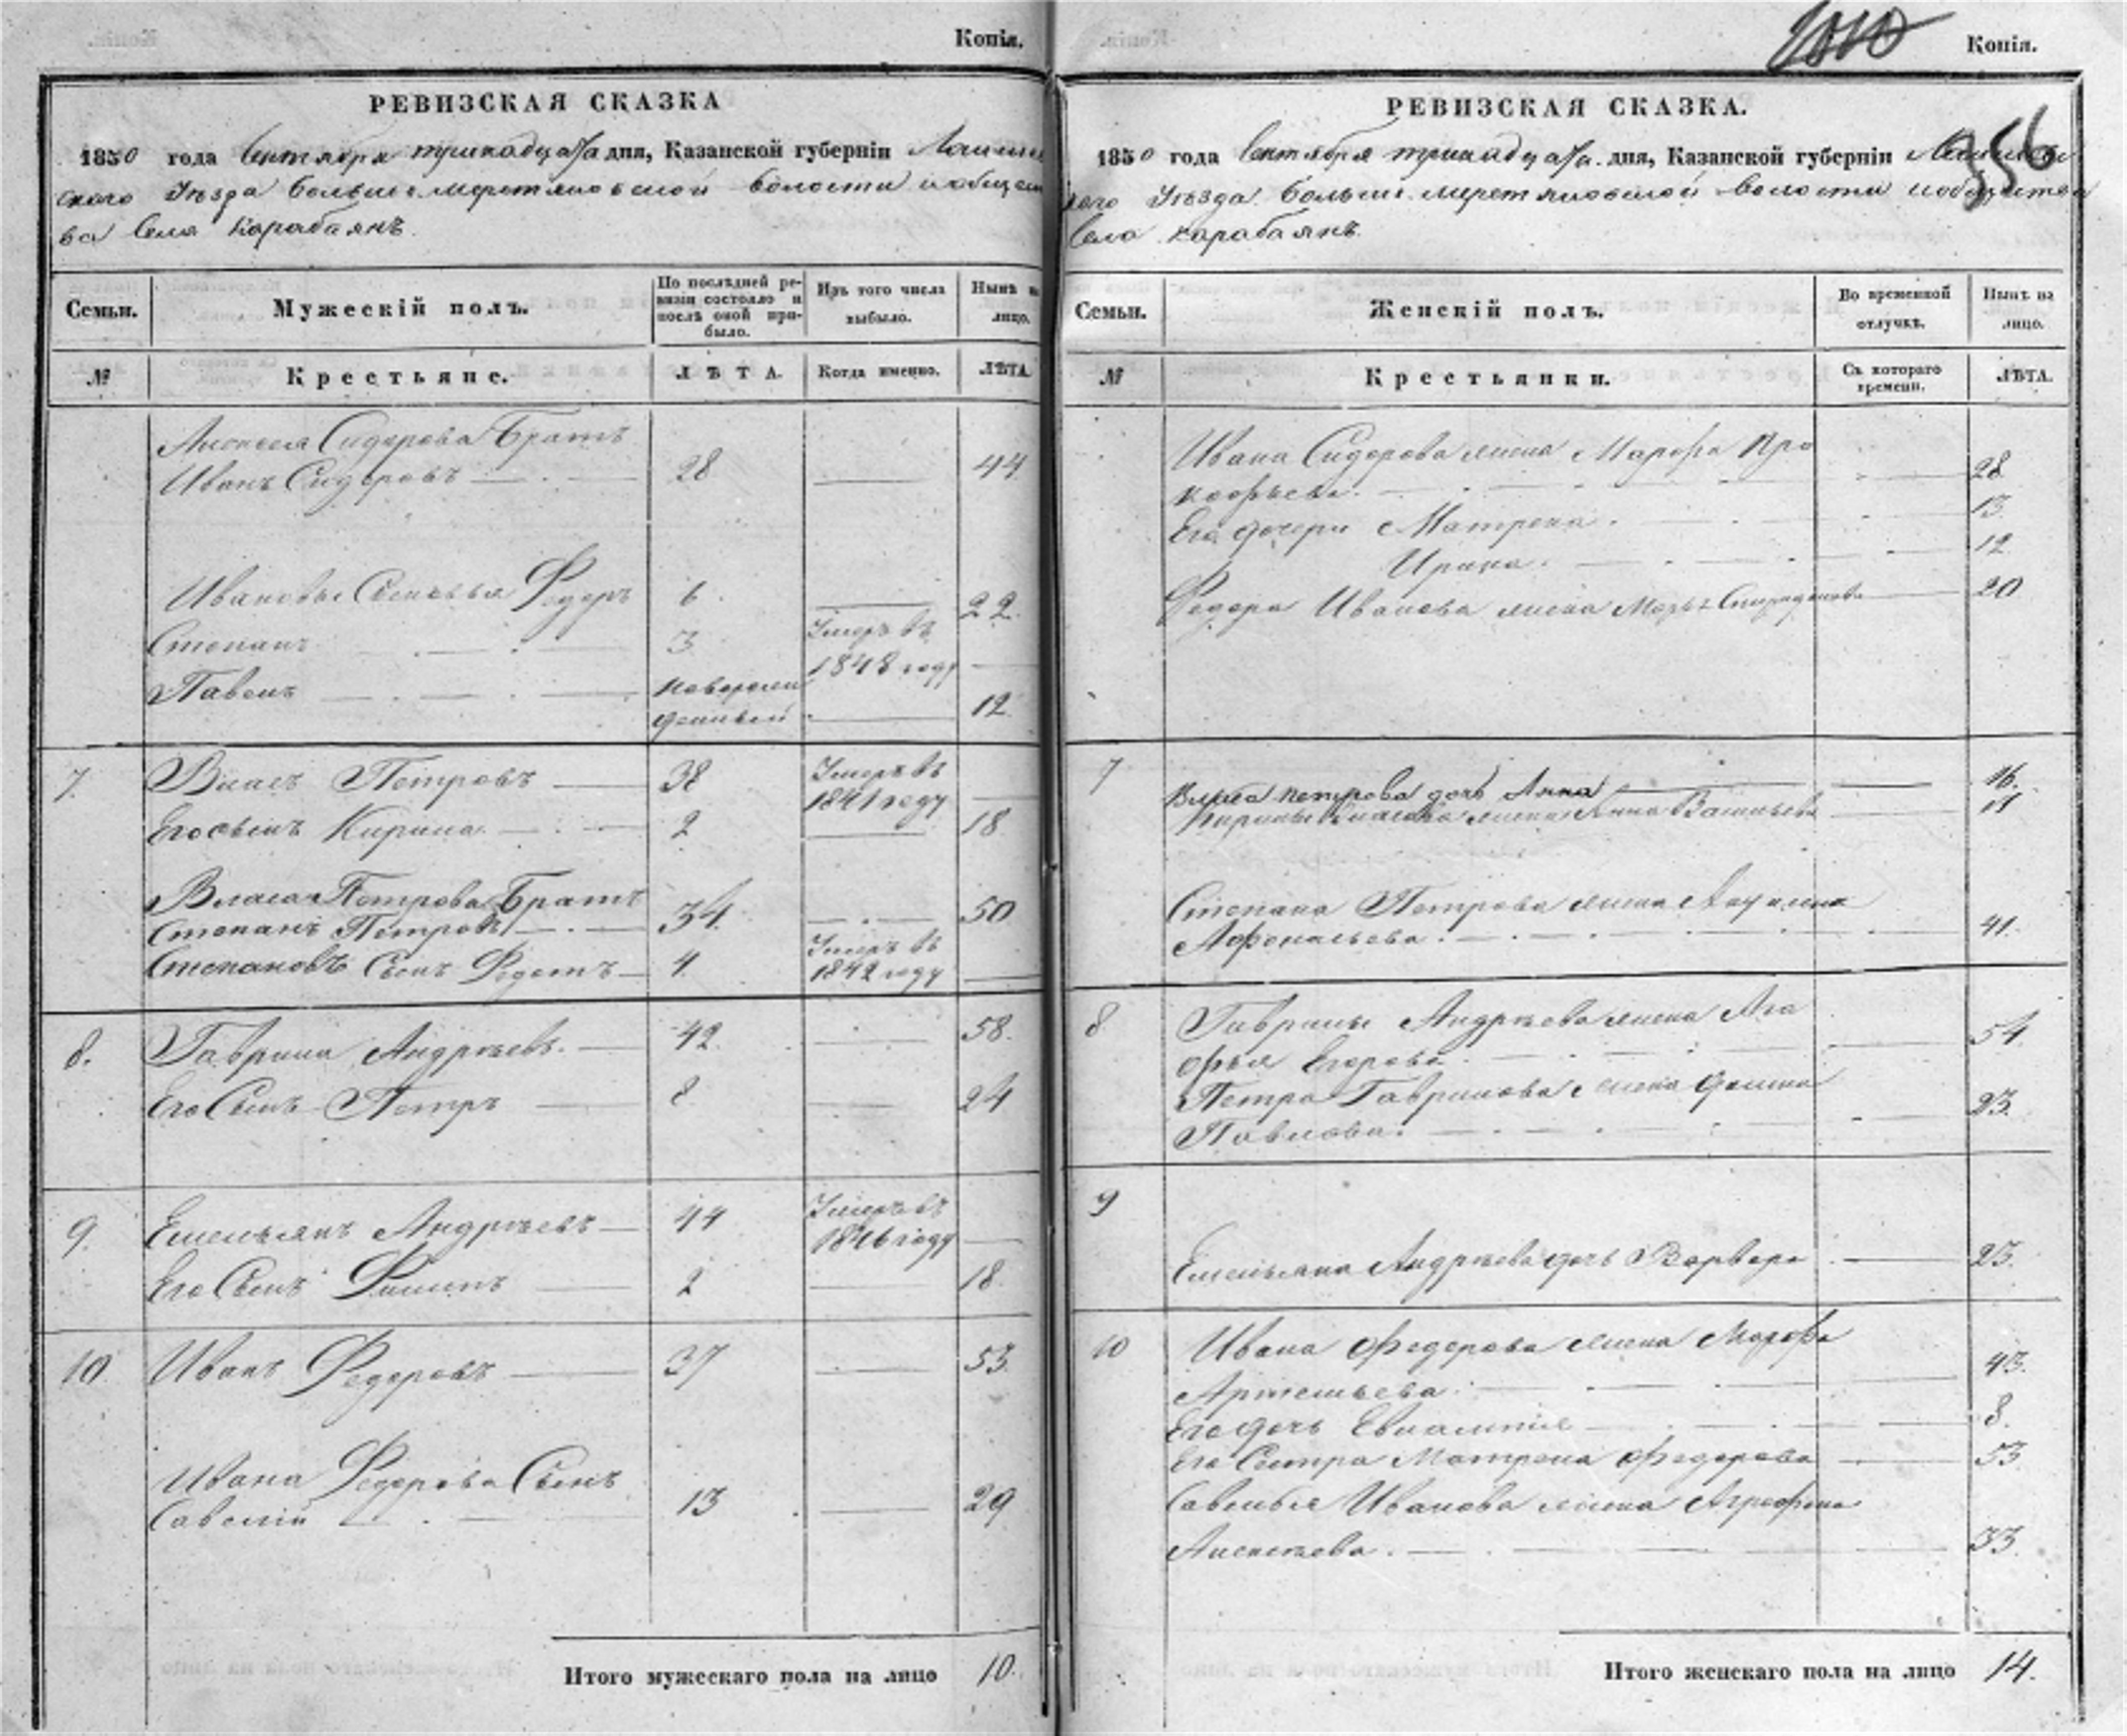 Копія.
РЕВИЗСКАЯ СКАЗКА
1850 года Сентября тринадцатаго дня, Казанской губерніи Лаише
скаго Уѣзда Больше-меретяковской волости
ва Села Карабаянъ.
Семьи.
Мужескій полъ.
По послѣдней ре-
визіи состояло и
послѣ оной при-
было.
Изъ того числа
выбыло.
Нынѣ на
лицо.
№
Крестьяне.
ЛѢТА.
Когда именно.
ЛѢТА.
Алексея Сидорова Братъ
Иванъ Сидоровъ 28 44
Ивановы Сыновья Федоръ 6 22
Степанъ 3 Умеръ въ
1848 году
Павелъ новорож
денный 12
7. Власъ Петровъ 38 Умеръ въ
1841 году
Его сынъ Кирила 2 18
Власа Петрова Братъ
Степанъ Петровъ 34 50
Степановъ Сынъ Федотъ 4 Умеръ въ
1842 году
8. Гаврила Андрѣевъ 42 58
Его Сынъ Петръ 8 24
9. Емельянъ Андрѣевъ 44 Умеръ въ
1846 году
Его Сынъ Филипъ 2 18
10 Иванъ Федоровъ 37 53
Ивана Федорова Сынъ
Савелій 13 29
Итого мужескаго пола на лицо 10.
Копія.
356
РЕВИЗСКАЯ СКАЗКА.
1850 года Сентября тринадцатаго дня, Казанской губерніи
скаго Уѣзда Больше-меретяковской волости
Села Карабаянъ
Семьи.
Женскій полъ.
Во временной
отлучкѣ.
Нынѣ на
лицо.
№
Крестьянки.
Съ котораго
времени.
ЛѢТА.
Ивана Сидорова жена Марфа Про
кофьева 28
Его дочери Матрена 13
Ирина 12
Федора Иванова жена Спиридонова 20
7 Власа петрова дочь Анна 16
Кирилы Власова жена Анна Васильева
Степана Петрова жена Акулина
Афонасьева 41
8 Гаврилы Андрѣева жена Ага
фья Егорова 54
Петра Гаврилова жена
Павлова 23
9
Емельяна Андрѣева дочь Варвара 23
10 Ивана Федорова жена Марфа
Артемьева 43
Его дочь Евлампія 8
Его Сестра Матрена Федорова 53
Савелья Иванова жена Агрофена
Алексѣева 33
Итого женскаго пола на лицо 14.